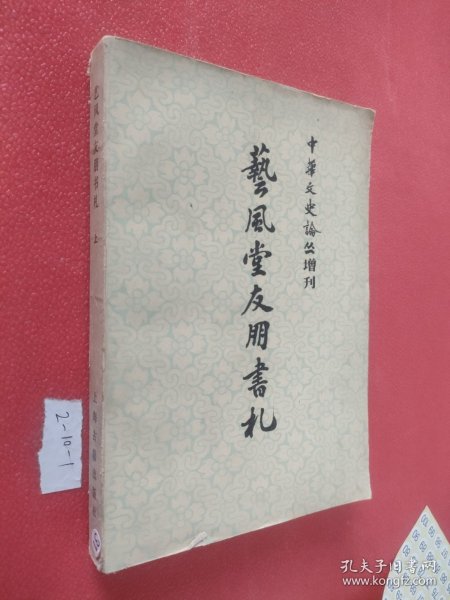 中華文史論丛增刊
藝風堂友朋書札
艺风堂友朋书札 上
上海古籍出版社
2-10-1
孔夫子旧书网
www.kongfz.com